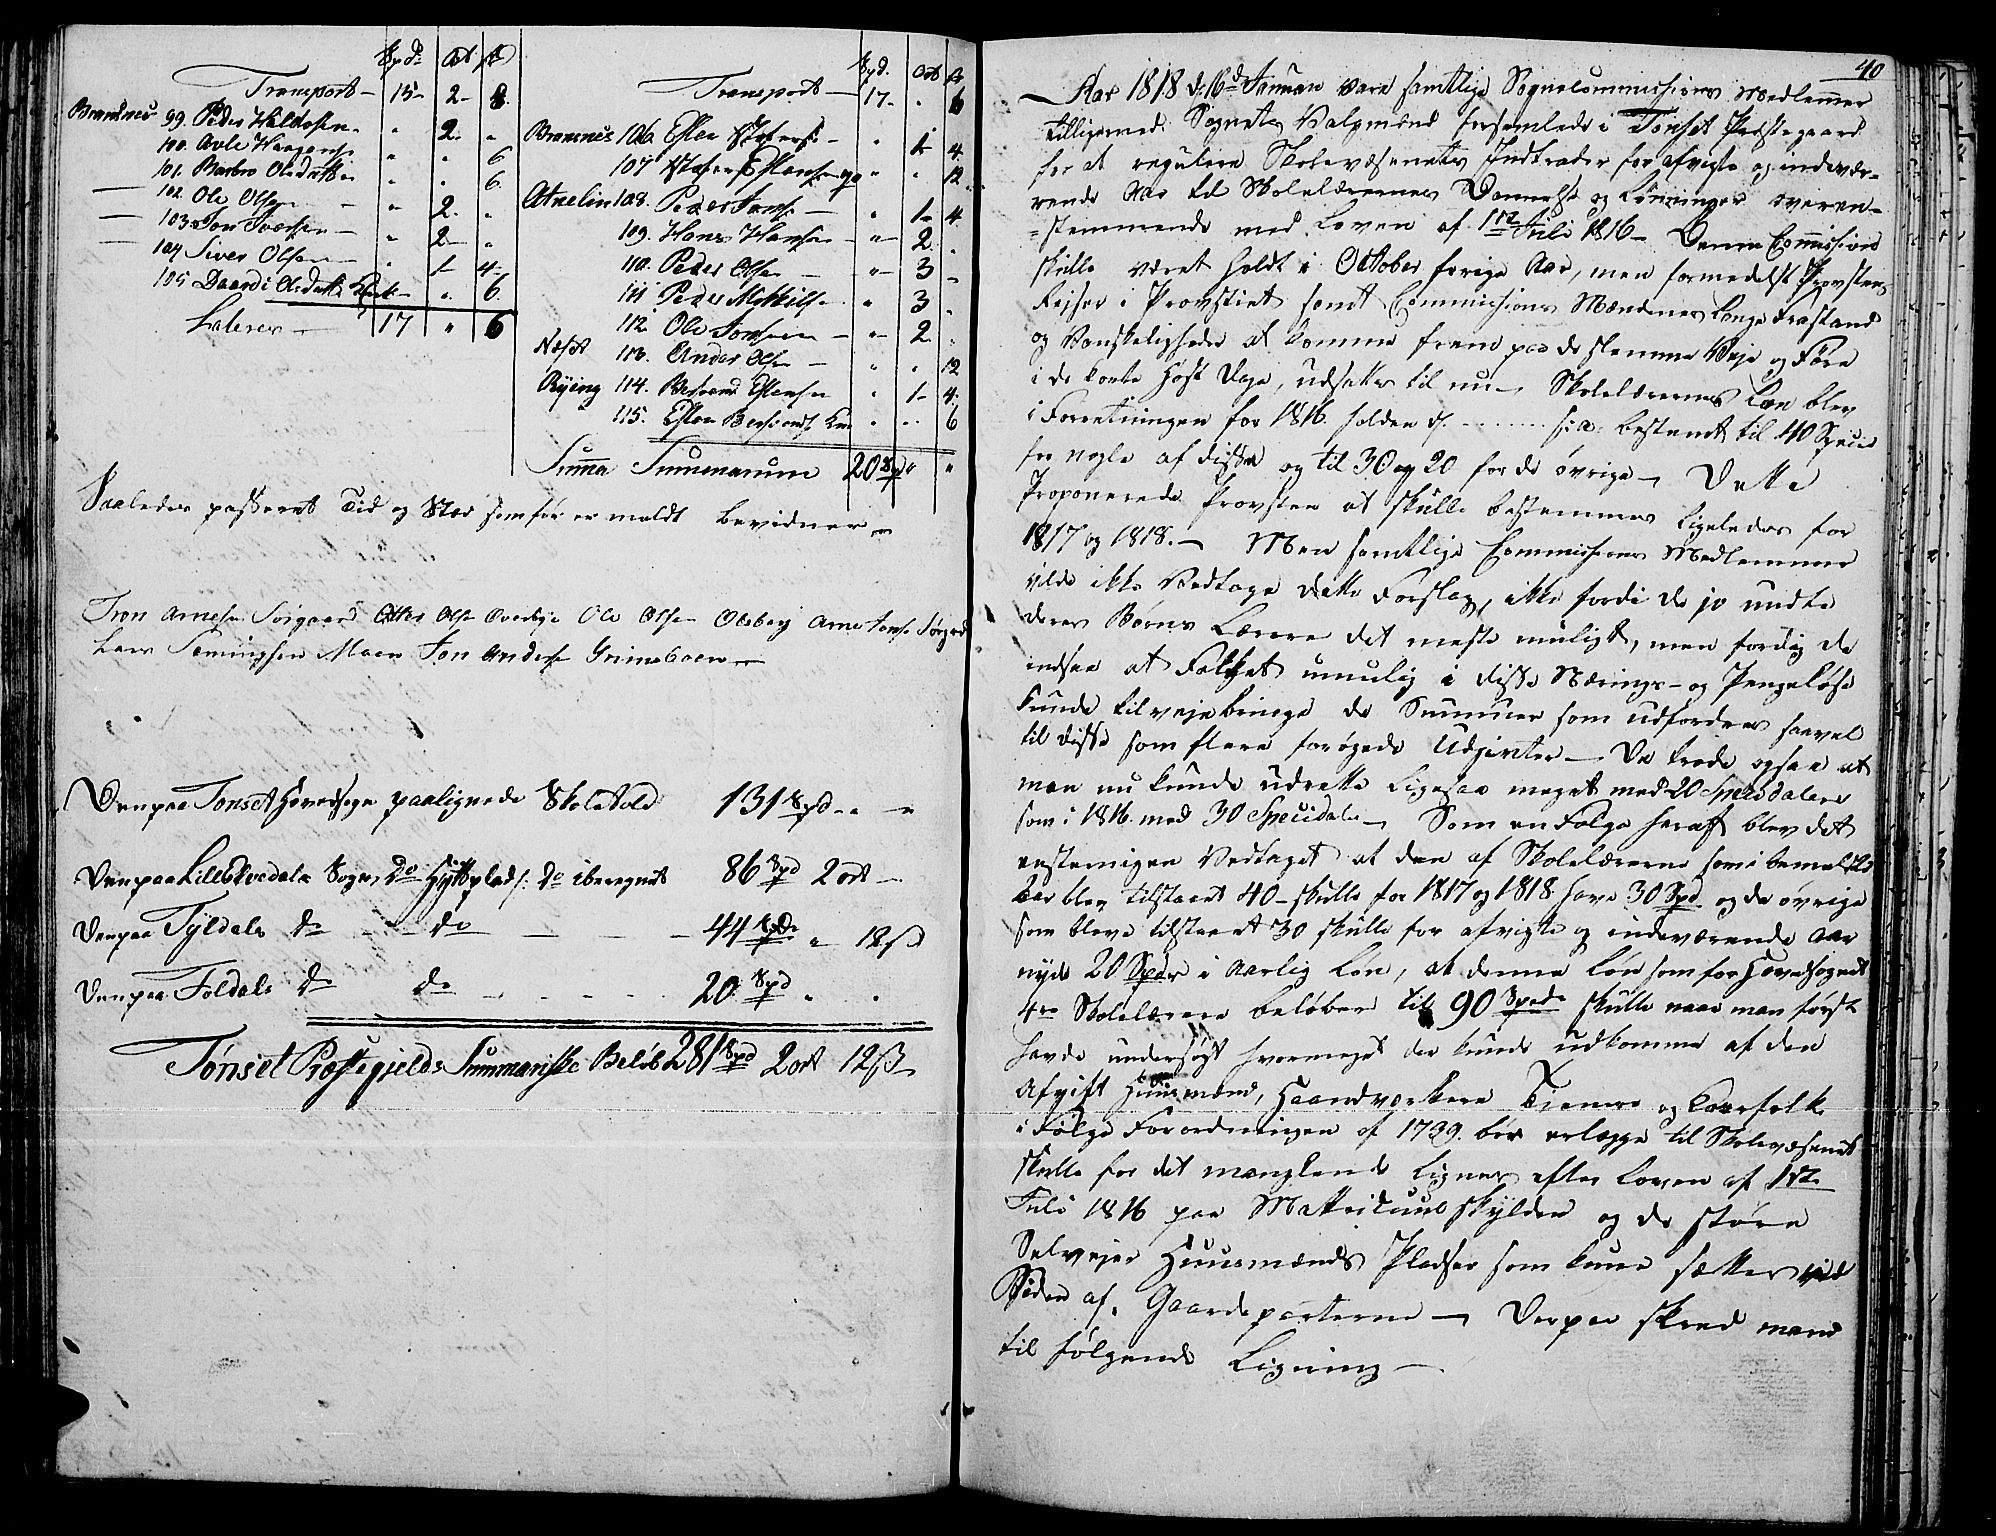 Spd. Ort ß
Transport — 15 - 2 - 8.
Brandnes 99. Peder Haldosen - " 2. "
100. " " 6
101. Barbro Olsdatter " " 6.
— 102. Ole Olsen — " 2. "
— 103. Jon — " 2 — "
104 Siver Olsen — " 1 - 4 -
105 Olsdatter " " 6
Lateres — 17 " 6
Spd. Ort ß
Transport — 17 - " 6
Brandnes 106. Esten — " 1 - 4
107 Estensen " " 12
Atnelien 108. Peder Jonsen — " 1 - 4
109. Hans Hansen — " 2 "
110. Peder Olsen — " 3 -
111 Peder " 3 -
112. Ole Jonsen — " 2. "
Næset 113. Anders Olsen — " " 12
Ryeing 114. Estensen " 1 - 4.
115. Esten " " 6
Summa Summarum 20 Spd " "
Saaledes passeret Tid og Sted som før er meldt bevidner —
Tron Arnesen Sorgaard Otter Olsen Overbye Ole Olsen Olsberg Arne Jonsen Sørgrd
Lars Semingsen Moen Jon Andersen Grimsboen —
Den paa Tønset Hovedsogn paalignede Skoletold 131 Spd " "
Den paa Lille Elvedals Sogn, do Hytteplads: do iberegnet 86 Spd 2 ort —
Den paa Tyldals do — do — 44 Spd " 12 ß
Den paa Foldals do do — 20 Spd " "
Tønset Præstegields Summariske Beløb 281 Spd 2 ort 12 ß
40
Aar 1818 d. 16d Januari vare samtlige Sognecommissions Medlemmer
tilligemed Sognets Valgmænd forsamlede i Tønset Præstegaard
for at regulere Skolevæsenets Indtræder for afvigte og indevæ-
rende Aar til Skolelærernes og Lønninger overen-
=stemmende med Loven af 1ste Juli 1816 — Denne Commission
skulle været holdt i October forige Aar, men formedelst Provstens
Rejser i Provstiet samt Commissions Mændenes lange Frastand
og Vanskeligheder at komme frem paa de slemme Veje og Føre
i de korte Høst Dage, udsattes til nu — Skolelærernes Løn blev
i Forretningen for 1816. holden d. ........ s: a: bestemt til 40 Specie
for nogle af disse og til 30 og 20 for de øvrige — Dette
Proponerede Provsten at skulle bestemmes ligeledes for
1817 og 1818. — Men samtlige Commissions Medlemmer
vilde ikke Vedtage dette Forslag, ikke fordi de jo undte
deres Børns Lærere det meste muligt, men fordig de
indsaae at Folket umulig i disse Nærings- og Pengeløse
kunde tilvejebringe de Summer som udfordres saavel
til disse som flere forøgede Udgivter — De troede ogsaa at
man nu kunde udrette ligesaa meget med 20 Speciedalere
som i 1816 med 30 Speciedaler — Som en Følge heraf blev det
eenstemmigen Vedtaget at den af Skolelærerne som i bemeldte
Aar blev tilstaaet 40 — skulle for 1817 og 1818 have 30 Spd og de øvrige
som bleve tilstaaet 30 skulle for afvigte og indeværende Aar
nyde 20 Spdr i Aarlig Løn, at denne Løn som for Hovedsognets
4re Skolelærere beløber til 90 Spedr skulle naar man først
havde undersøgt hvormeget der kunde udkomme af den
Afgift Huusmænd, Haandværkere Tienere og Kaarfolk
i Følge Forordningen af 1739. bør erlægge til Skolevæsenet
skulle for det manglende lignes efter Loven af 1ste
Juli 1816 paa Matriculskylden og de større
Selvejer Huusmænds Pladser som kunne sættes ved
Siden af Gaardeparterne — Derpaa skred mand
til følgende Ligning —